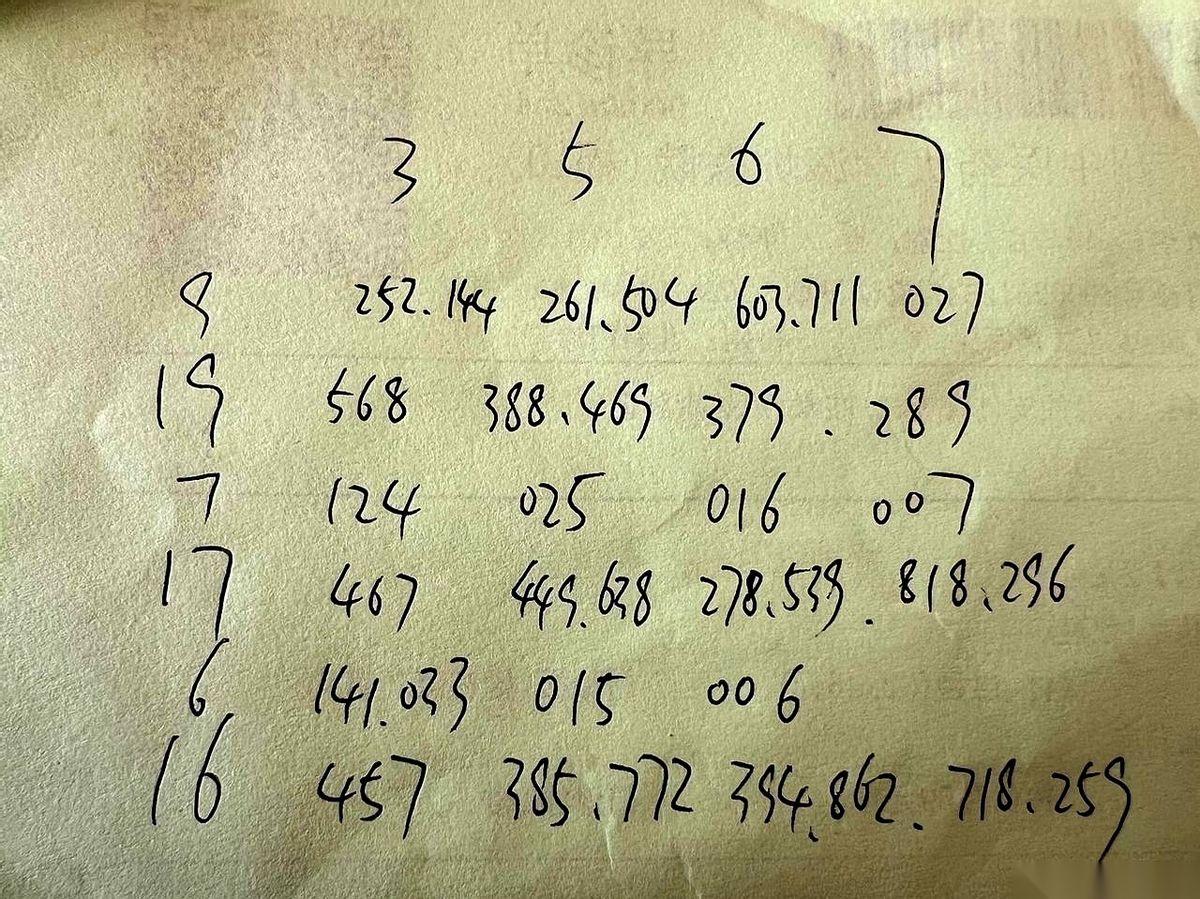 3 5 6 7
9 252.144 261.504 603.711 027
19 568 388.469 379. 289
7 124 025 016 007
17 467 449.638 278.539. 818.296
6 141.033 015 006
16 457 385.772 394.862. 718.259